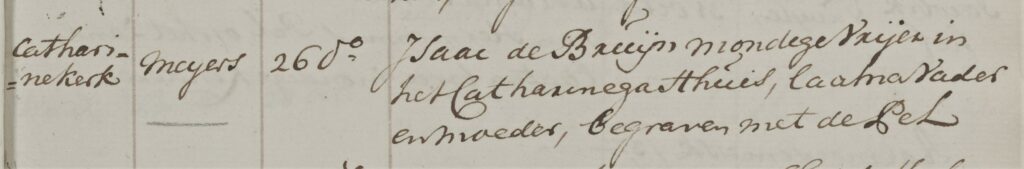 Cathari=
=nekerk
Meyers
26 d.o
Isaac de Bruijn mondege Vrijer in
het Catharinegasthuis, laat na Vader
en moeder, begraven met de Pel